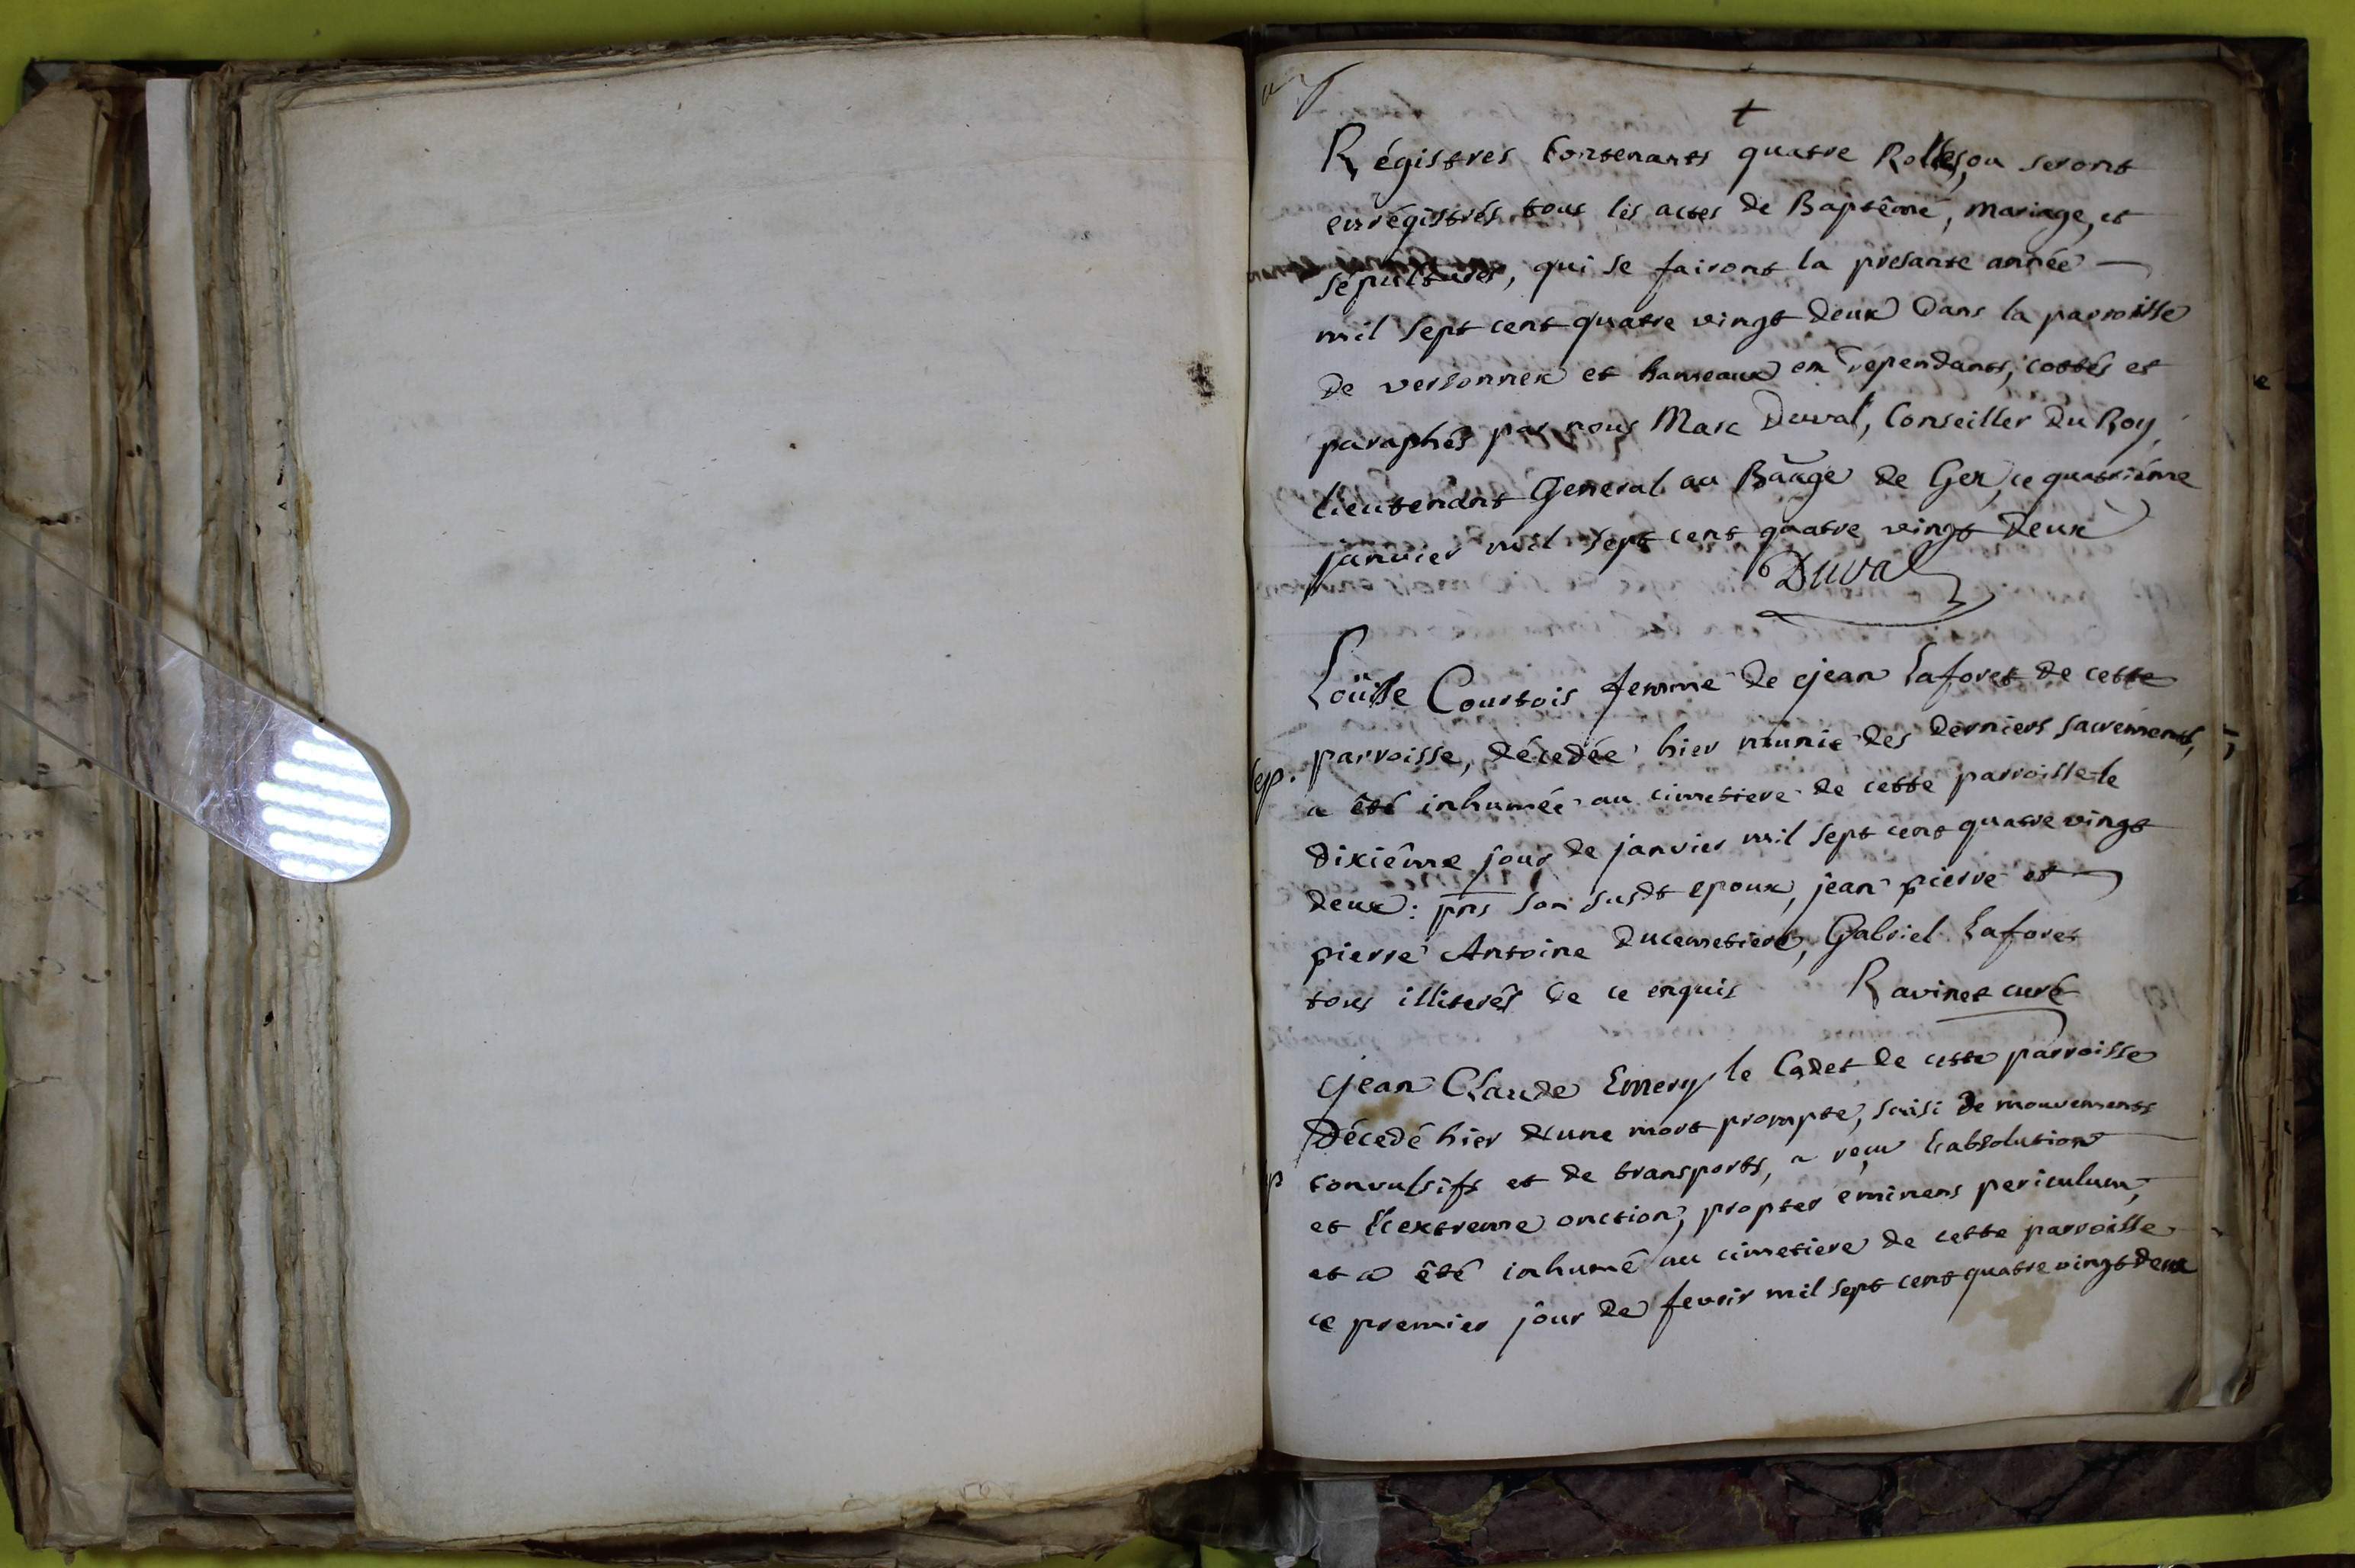 +
Régistres Contenants quatre Rolles, ou seront
enrégistrés tous les actes de Baptême, mariage, et
sépultures, qui se fairont la presante année —
mil sept cent quatre vingt deux dans la parroisse
de versonnex et hameaux en dependants, cottés et
paraphés par nous Marc Duval, Conseiller Du Roy
lieutenant General au Baãge de Gex, ce quatriéme
janvier mil sept cent quatre vingt deux
Duval
Loüise Courtois femme de jean Laforet de cette
parroisse, décedée hier munie des derniers sacrements,
sep.
a été inhumée au cimetiere de cette parroisse le
dixiême jour de janvier mil sept cent quatre vingt
deux : pns son susdt epoux, jean pierre et
pierre Antoine Ducemetiere, Gabriel Laforet
tous illiterés de ce enquis Ravinet curé
jean Claude Emery le Cadet de cette parroisse
Décedé hier d'une mort prompte, saisi de mouvements
convulsifs et de transports, a reçu l'absolution
et l'extreme onction, propter eminens periculum,
et a été inhumé au cimetiere de cette parroisse
ce premier jour de fevrir mil sept cent quatre vingt deux